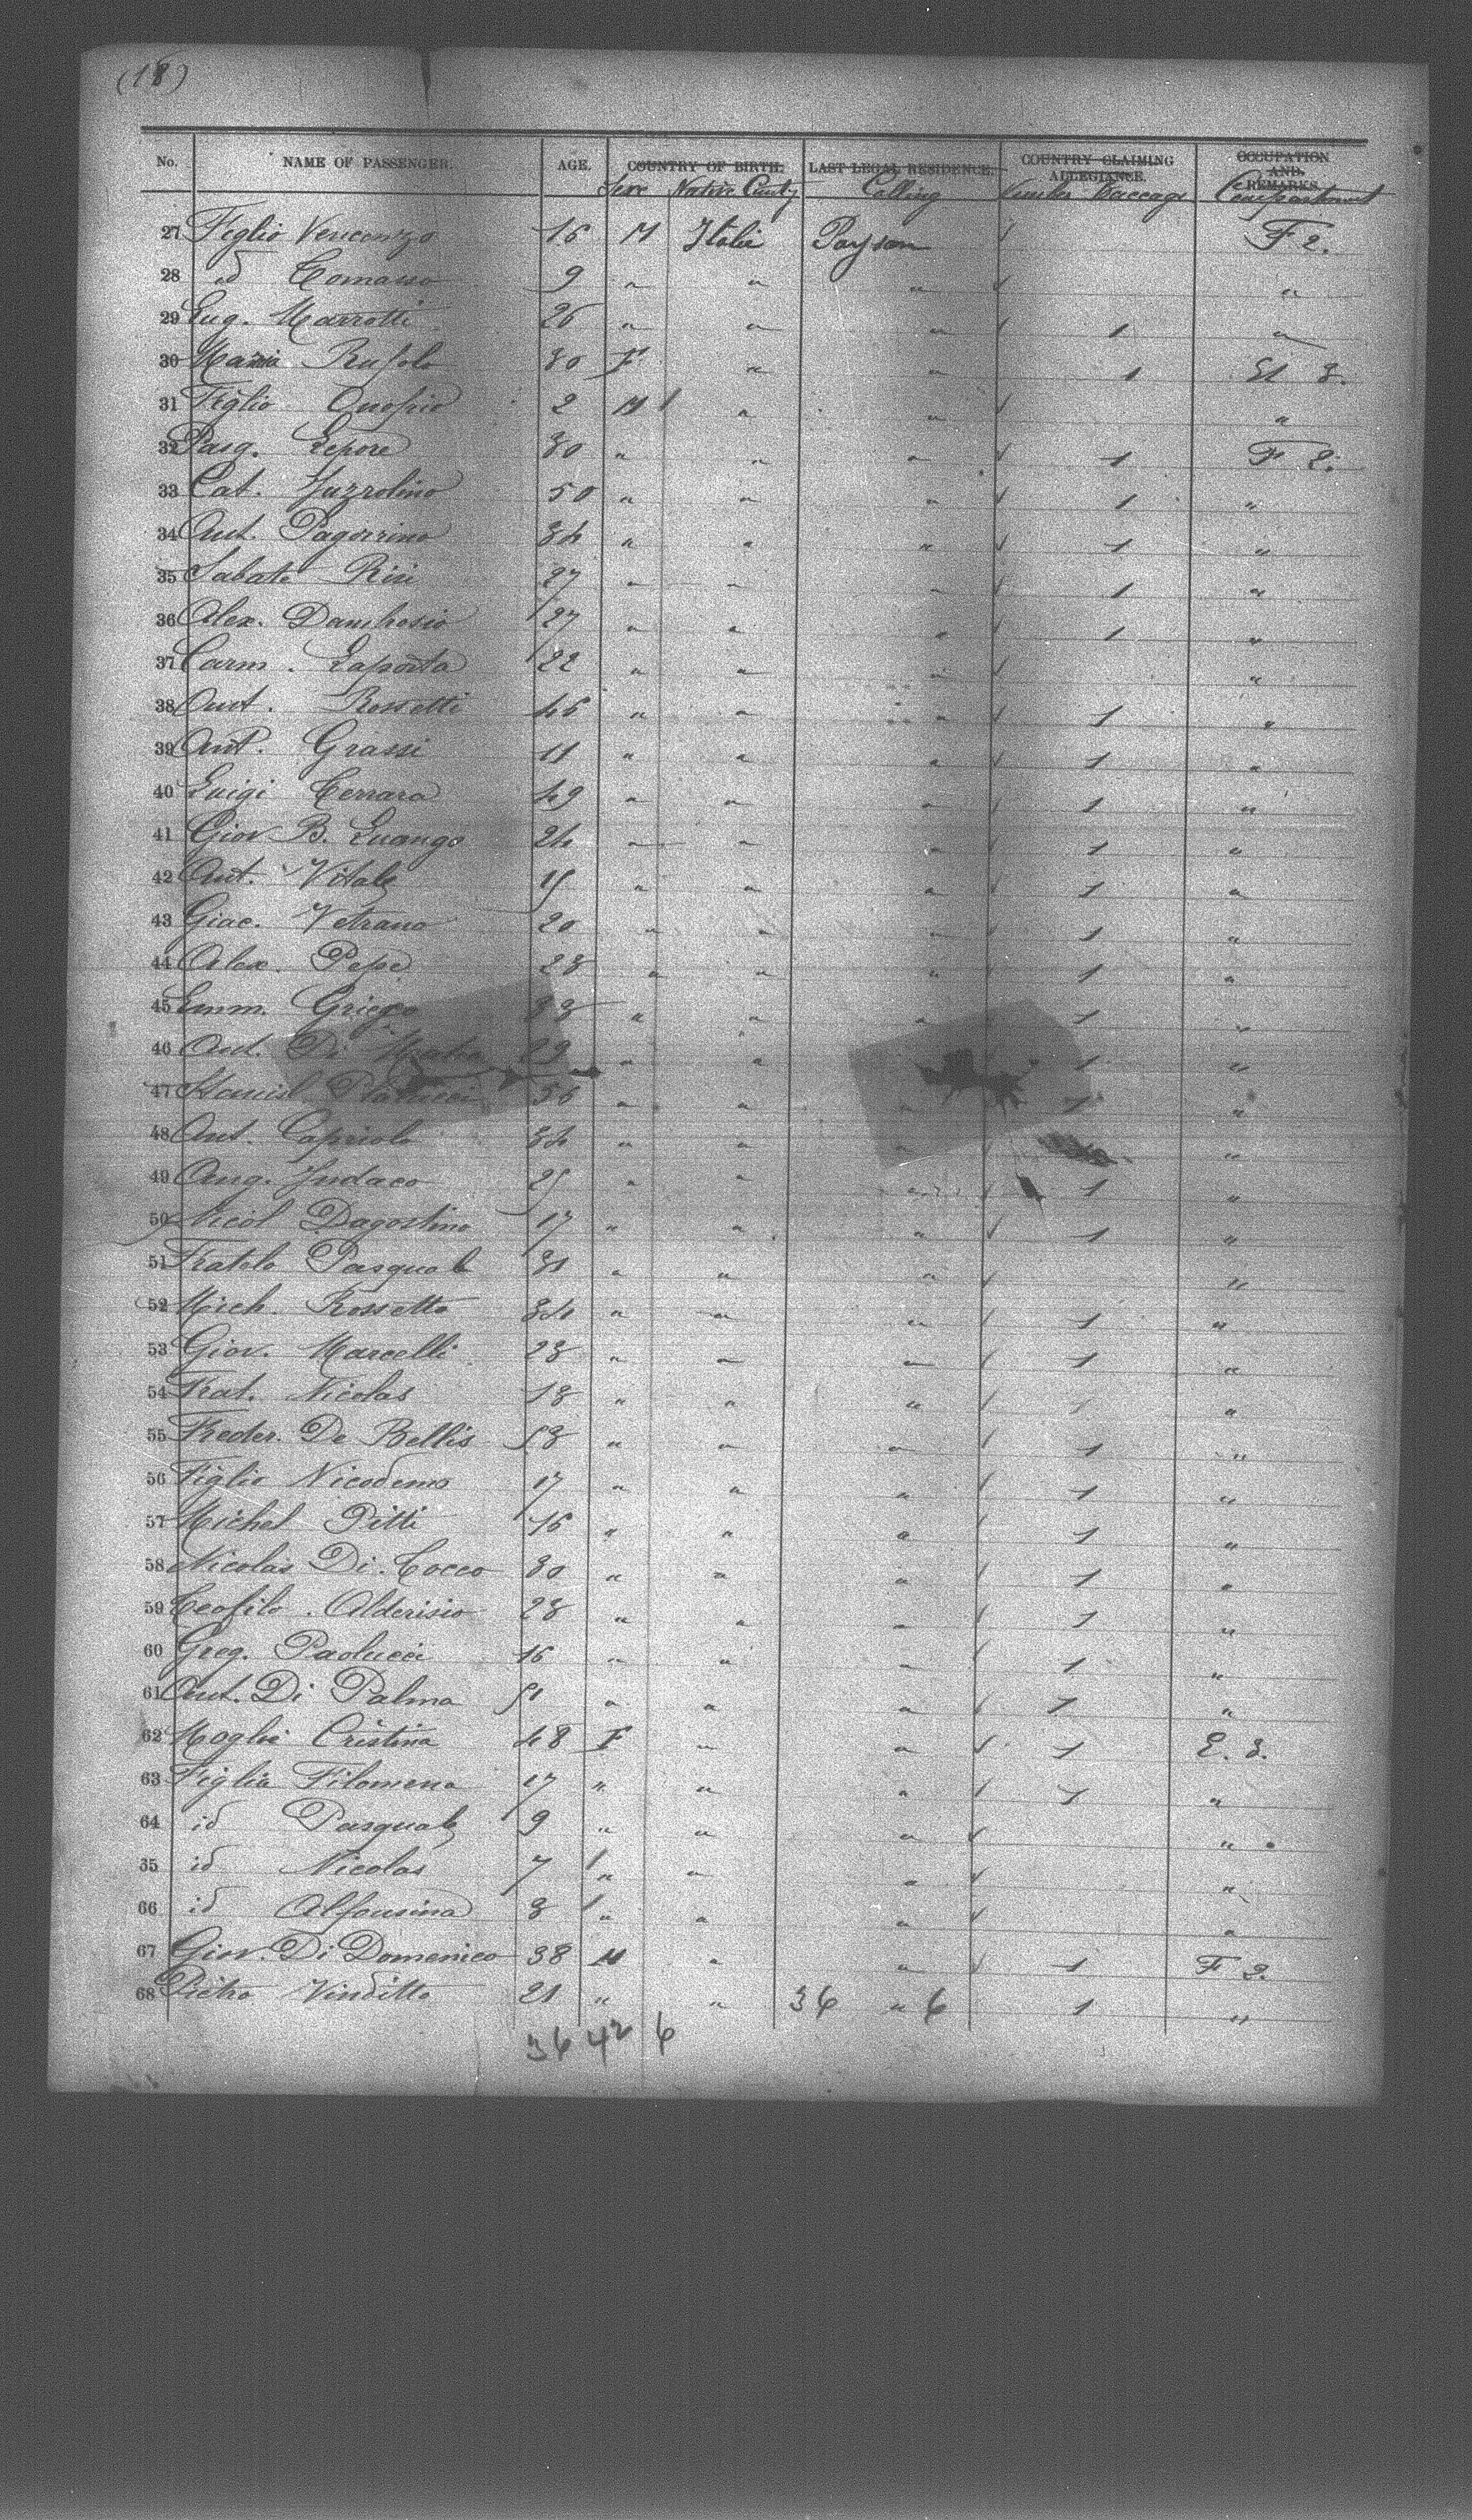 (18)
No. NAME OF PASSENGER. AGE. COUNTRY OF BIRTH. LAST LEGAL RESIDENCE. COUNTRY CLAIMING ALLEGIANCE. OCCUPATION AND REMARKS.
Sexe Native Cuntry Calling Number Baccage Compartment
27 Figlio Vencenzo 16 M Italie Paysan F 2.
28 id Tomasso 9 " " " "
29 Eug. Marrotti 26 " " " 1 "
30 Maria Rufolo 30 F " " 1 El 3.
31 Figlio Onofrio 2 M " " "
32 Pasq. Lepore 30 " " " 1 F 2.
33 Cat. 50 " " " 1 "
34 Ant. 34 " " " 1 "
35 Sabato Risi 27 " " " 1 "
36 Alex. Dambrosio 27 " " " 1 "
37 Carm. Laporta 22 " " " "
38 Ant. Rossetti 46 " " " 1 "
39 Ant. Grassi 11 " " " 1 "
40 Luigi Terrara 49 " " " 1 "
41 Giov. B. Luango 24 " " " 1 "
42 Ant. Vitale 15 " " " 1 "
43 Giac. Vetrano 20 " " " 1 "
44 Alex. Pepe 28 " " " 1 "
45 Emm. Griego 33 " " " 1 "
46 And. Di 29 " " 1 "
47 36 " " " 1 "
48 Ant. Capriolo 34 " " " "
49 Ang. Judaco 25 " " " 1 "
50 Nicol Dagostino 17 " " " 1 "
51 Fratelo Pasquale 31 " " " "
52 Mich. Rossetto 34 " " " 1 "
53 Giov. Marcelli 28 " " " 1 "
54 Frat. Nicolas 18 " " " "
55 Freder. De Bellis 58 " " " 1 "
56 Figlio Nicodemo 17 " " " 1 "
57 Michel Pitti 16 " " " 1 "
58 Nicolas Di Cocco 30 " " " 1 "
59 Teofilo Alderisio 28 " " " 1 "
60 Greg. Paolucci 16 " " " 1 "
61 Ant. Di Palma 51 " " " 1 "
62 Moglie Cristina 48 F " " 1 E. 3.
63 Figlia Filomena 17 " " " 1 "
64 id Pasquale 9 " " " "
35 id Nicolas 7 " " " "
66 id Alfonsina 3 " " " "
67 Giov. Di Domenico 38 M " " 1 F 2.
68 Pietro Vinditto 21 " " 36 " 6 1 "
36 42 6